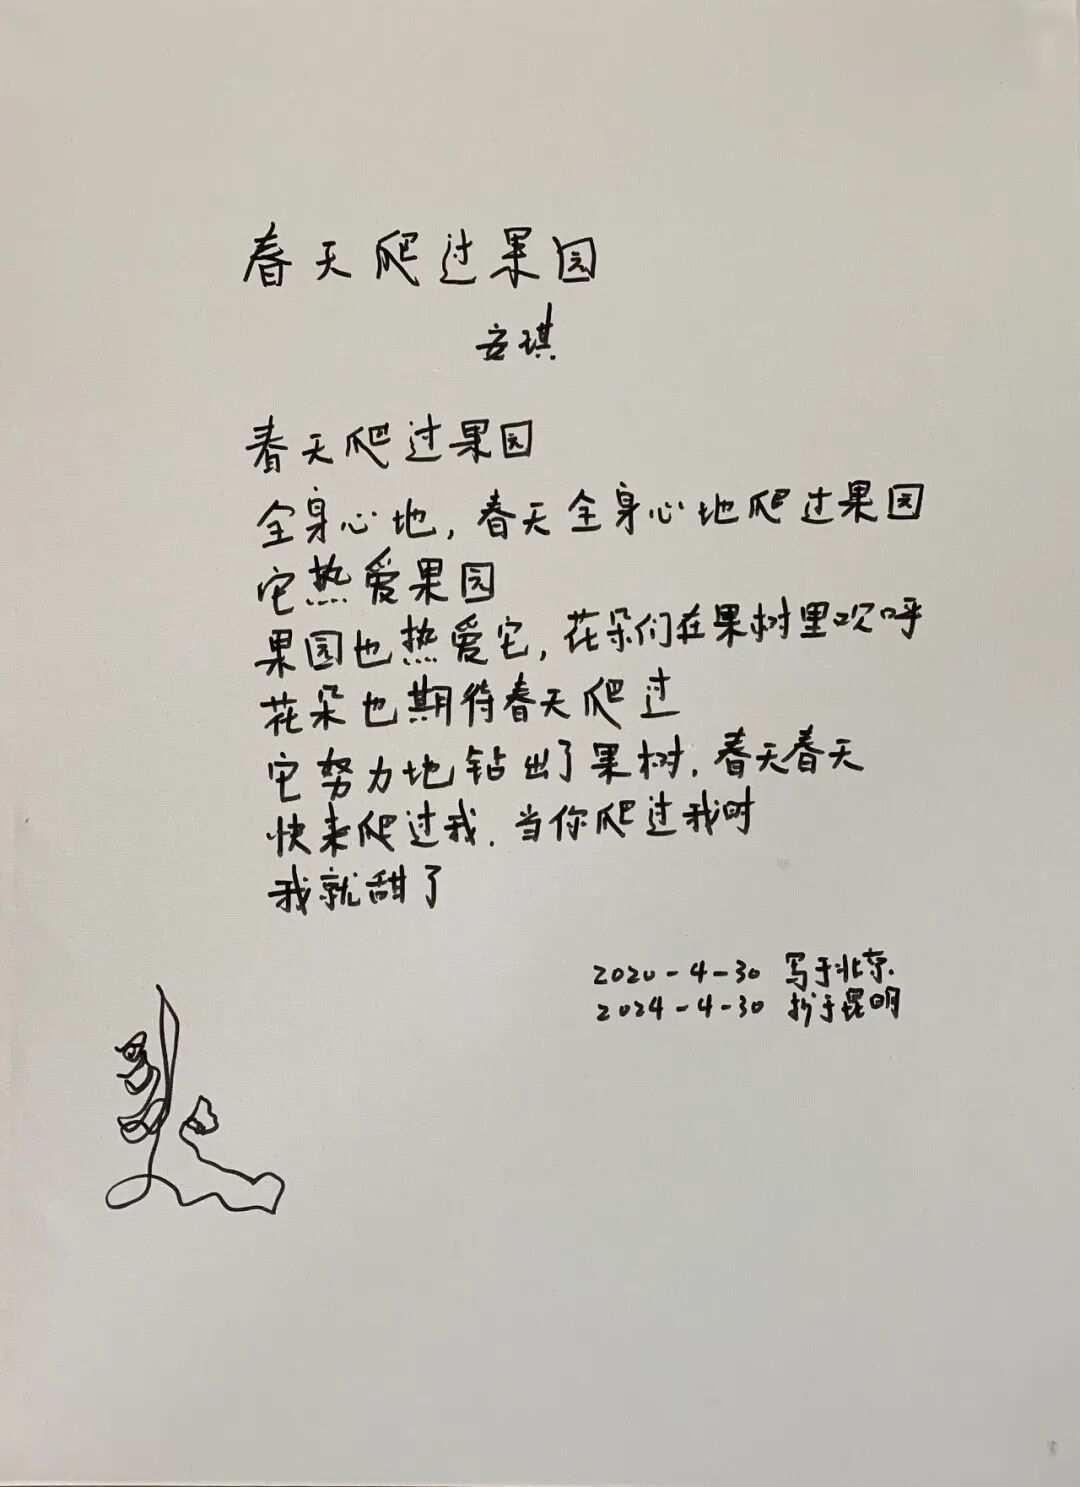 春天爬过果园
安琪
春天爬过果园
全身心地,春天全身心地爬过果园
它热爱果园
果园也热爱它,花朵们在果树里欢呼
花朵也期待春天爬过
它努力地钻出了果树.春天春天
快来爬过我.当你爬过我时
我就甜了
2020-4-30 写于北京.
2024-4-30 抄于昆明